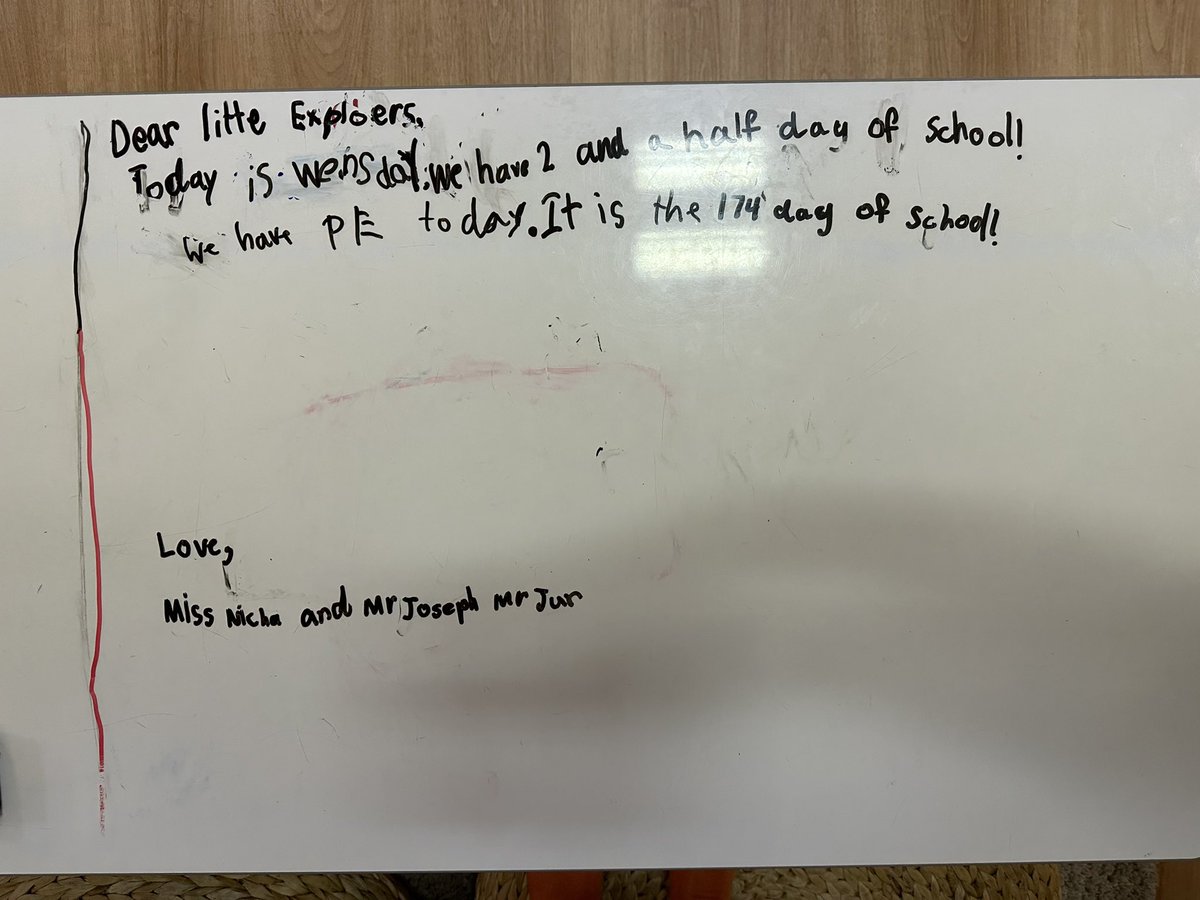 Dear litte Exploers,
Today is wensday. We have 2 and a half day of school!
We have PE today. It is the 174 day of school!
Love,
Miss Nicha and Mr Joseph Mr Jur